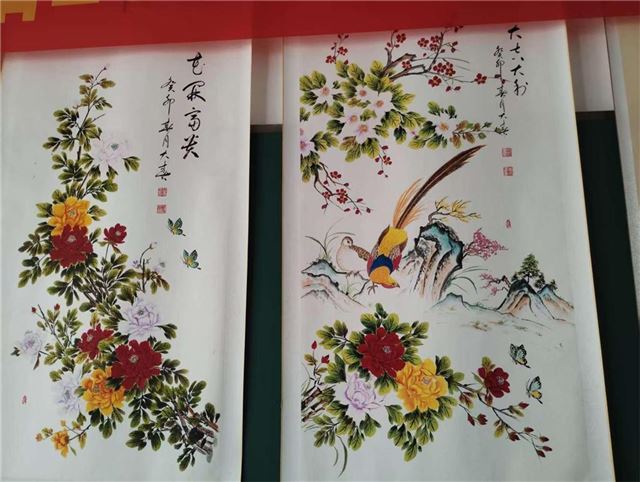 花开富贵
癸卯春月大喜
大吉大利
癸卯春月大喜